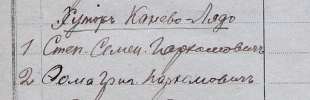 Хуторъ Канево-Лядо
1 Степ. Семен. Пархамовичъ
2 Фома Григ. Пархамовичъ